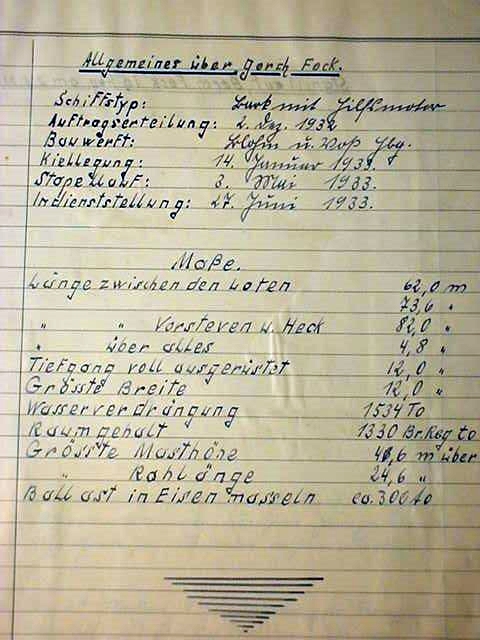 Allgemeines über Gorch Fock.
Schiffstyp: Bark mit Hilfsmotor
Auftragserteilung: 2. Dez. 1932
Bauwerft: Blohm u. Voß Hbg.
Kiellegung: 14. Januar 1933.
Stapellauf: 3. Mai 1933.
Indienststellung: 27. Juni 1933.
Maße.
Länge zwischen den Loten 62,0 m
73,6 "
" " Vorsteven u. Heck 82,0 "
" über alles 4,8 "
Tiefgang voll ausgerüstet 12,0 "
Grösste Breite 12,0 "
Wasserverdrängung 1534 To
Raumgehalt 1330 Br Reg to
Grösste Masthöhe m über
" Rahlänge 24,6 "
Ballast in Eisenmasseln ca. 300 to